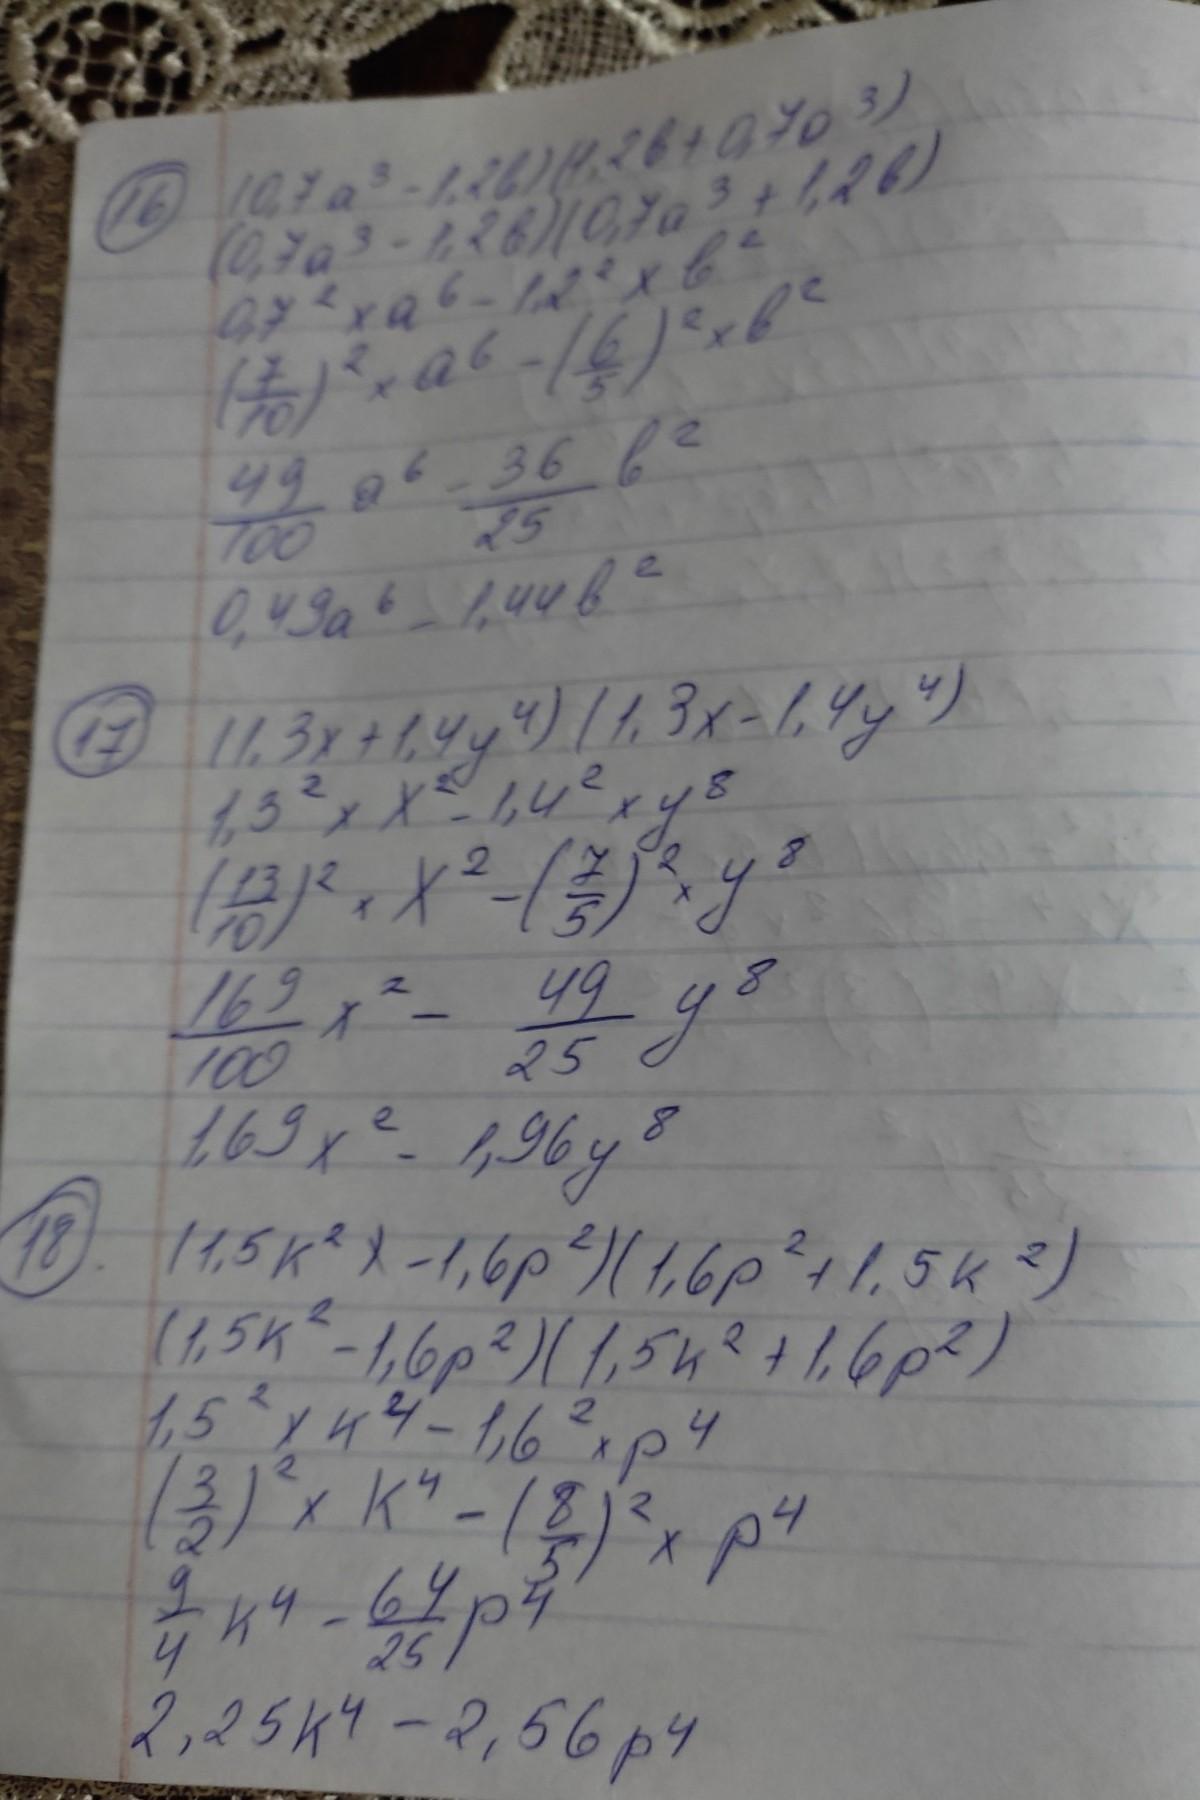 16 (0,7a³ - 1,2b)(1,2b + 0,7a³)
(0,7a³ - 1,2b)(0,7a³ + 1,2b)
0,7² × a⁶ - 1,2² × b²
(7/10)² × a⁶ - (6/5)² × b²
49/100 a⁶ - 36/25 b²
0,49a⁶ - 1,44b²
17 (1,3x + 1,4y⁴)(1,3x - 1,4y⁴)
1,3² × x² - 1,4² × y⁸
(13/10)² × x² - (7/5)² × y⁸
169/100 x² - 49/25 y⁸
1,69x² - 1,96y⁸
18. (1,5k² ) - 1,6p²)(1,6p² + 1,5k²)
(1,5k² - 1,6p²)(1,5k² + 1,6p²)
1,5² × k⁴ - 1,6² × p⁴
(3/2)² × k⁴ - (8/5)² × p⁴
9/4 k⁴ - 64/25 p⁴
2,25k⁴ - 2,56p⁴